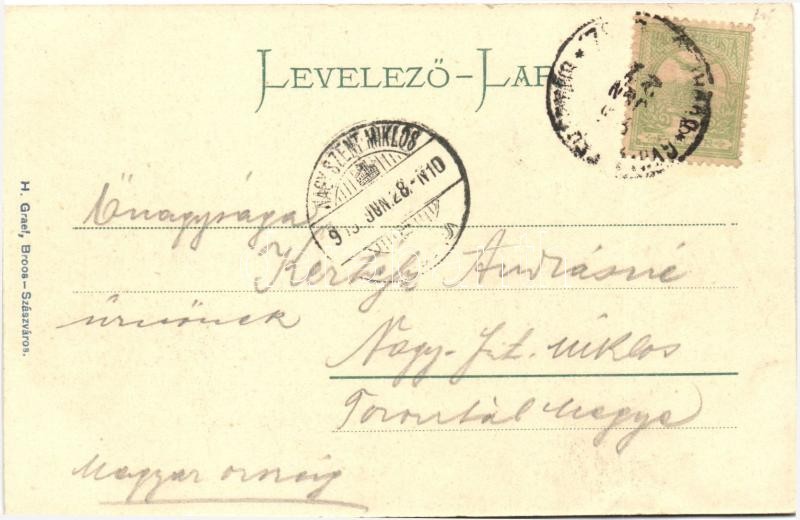 LEVELEZŐ-LAP
NAGY SZENT MIKLÓS
JUN. 28.-N10
Őnagysága
Andrásné
úrnőnek
Nagy-Szt. Miklós
Torontál megye
Magyarország
H. Graef, Broos-Szászváros.